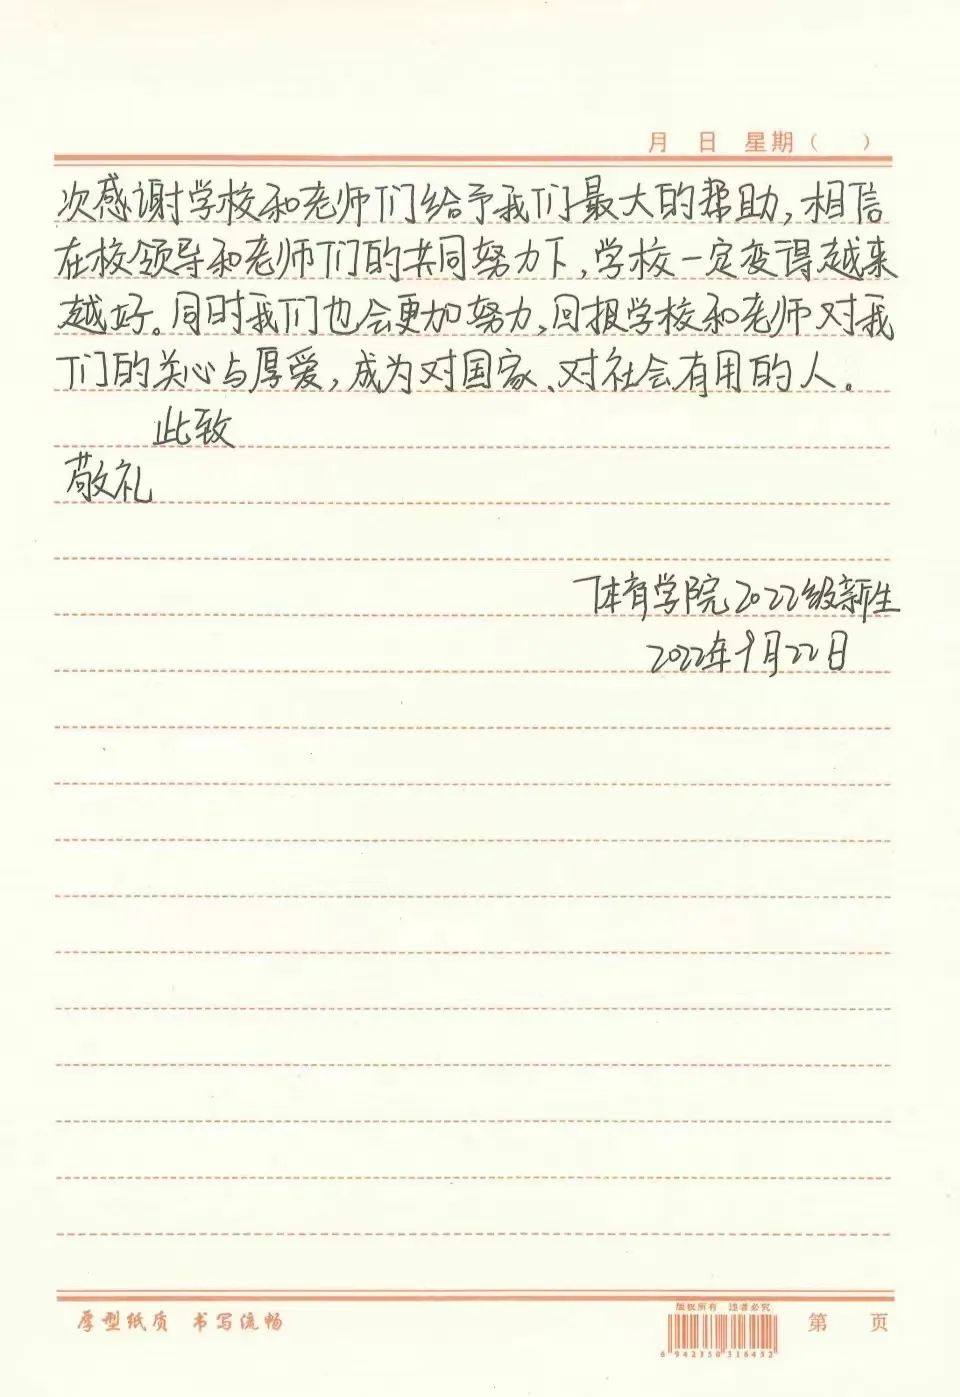 月 日 星期（ ）
次感谢学校和老师们给予我们最大的帮助，相信
在校领导和老师们的共同努力下，学校一定变得越来
越好。同时我们也会更加努力，回报学校和老师对我
们的关心与厚爱，成为对国家、对社会有用的人。
此致
敬礼
体育学院2022级新生
2022年9月22日
厚型纸质 书写流畅
版权所有 违者必究
6 942350 316452
第 页